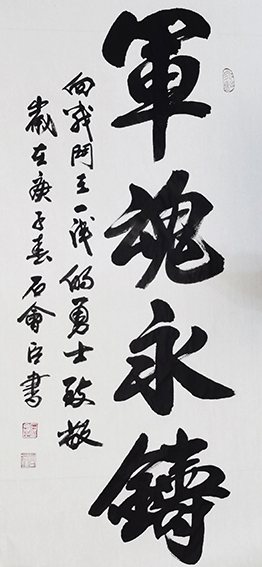 軍魂永鑄
向戰鬥在一线的勇士致敬
歲在庚子春石會書